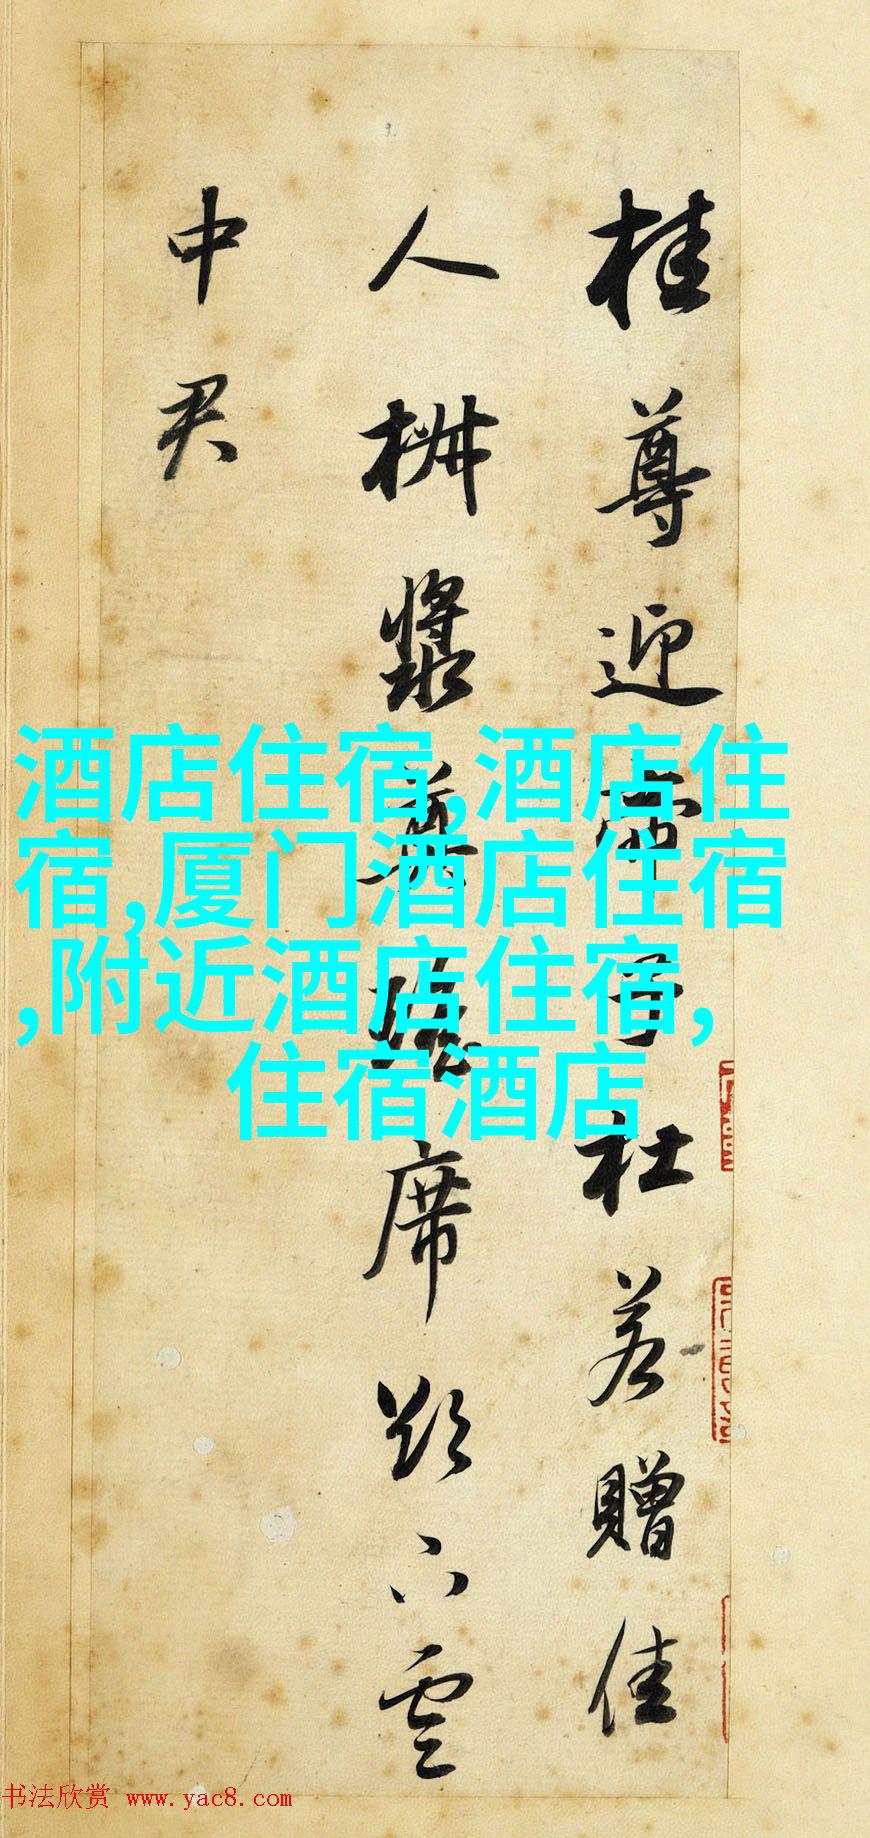 桂尊迎帝子杜若贈佳
人椒漿奠瑤席欲下雲
中君
酒店住宿,酒店住
宿,厦门酒店住宿
,附近酒店住宿,
住宿酒店
书法欣赏 www.yac8.com